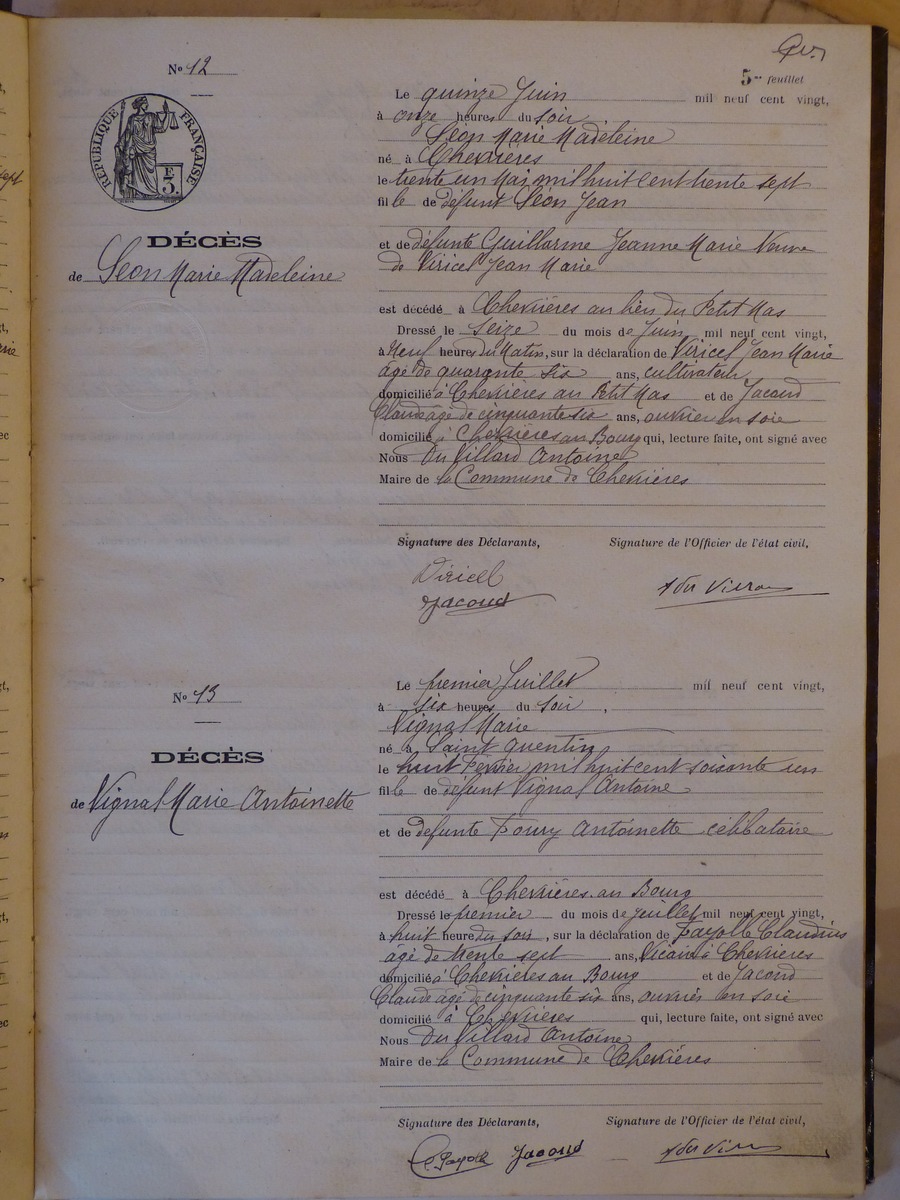 5me feuillet
No 12
RÉPUBLIQUE FRANÇAISE
DÉCÈS
de Séon Marie Madeleine
Le quinze Juin mil neuf cent vingt,
à onze heures du soir
Séon Marie Madeleine
né à Chevrières
le trente un Mai mil huit cent trente sept
fille de défunt Séon Jean
et de défunte Guillarme Jeanne Marie Veuve
de Viricel Jean Marie
est décédé à Chevrières au lieu du Petit Mas
Dressé le seize du mois de Juin mil neuf cent vingt,
à Neuf heures du Matin, sur la déclaration de Viricel Jean Marie
âgé de quarante six ans, cultivateur
domicilié à Chevrières au Petit Mas et de Jacoud
Claude âgé de cinquante six ans, ouvrier en soie
domicilié à Chevrières au Bourg qui, lecture faite, ont signé avec
Nous Du Villard Antoine
Maire de la Commune de Chevrières
Signature des Déclarants, Signature de l'Officier de l'état civil,
Viricel
Jacoud
No 13
DÉCÈS
de Vignal Marie Antoinette
Le premier Juillet mil neuf cent vingt,
à six heures du soir,
Vignal Marie
né à Saint Quentin
le huit Fevrier mil huit cent soisante un
fille de défunt Vignal Antoine
et de defunte Foury Antoinette célibataire
est décédé à Chevrières au Bourg
Dressé le premier du mois de Juillet mil neuf cent vingt,
à huit heure du soir, sur la déclaration de Fayolle Claudius
âgé de trente sept ans, Vicaire à Chevrières
domicilié à Chevrières au Bourg et de Jacoud
Claude âgé de cinquante six ans, ouvrier en soie
domicilié à Chevrières qui, lecture faite, ont signé avec
Nous Du Villard Antoine
Maire de la Commune de Chevrières
Signature des Déclarants, Signature de l'Officier de l'état civil,
C. Fayolle Jacoud